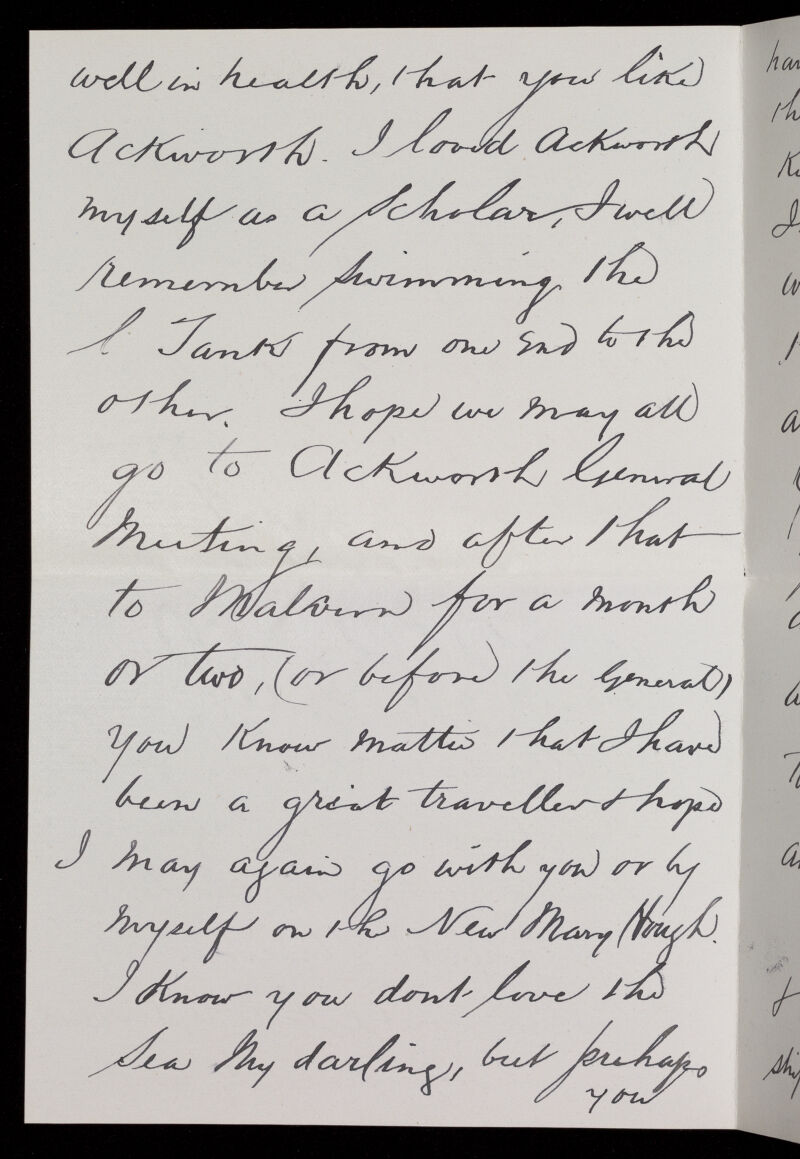 well in health, that you like
Ackworth. I loved Ackworth
myself as a Scholar, I well
remember swimming the
l Tanks from one end to the
other. I hope we may all
go to Ackworth General
Meeting, and after that
to Malvern for a month
or two, (or before the General)
You Know Mattie that I have
been a great traveller & hope
I may again go with you or by
myself on the New Mary Hough.
I Know you dont love the
Sea My darling, but perhaps
you
har
th
w
a
a
&
ship